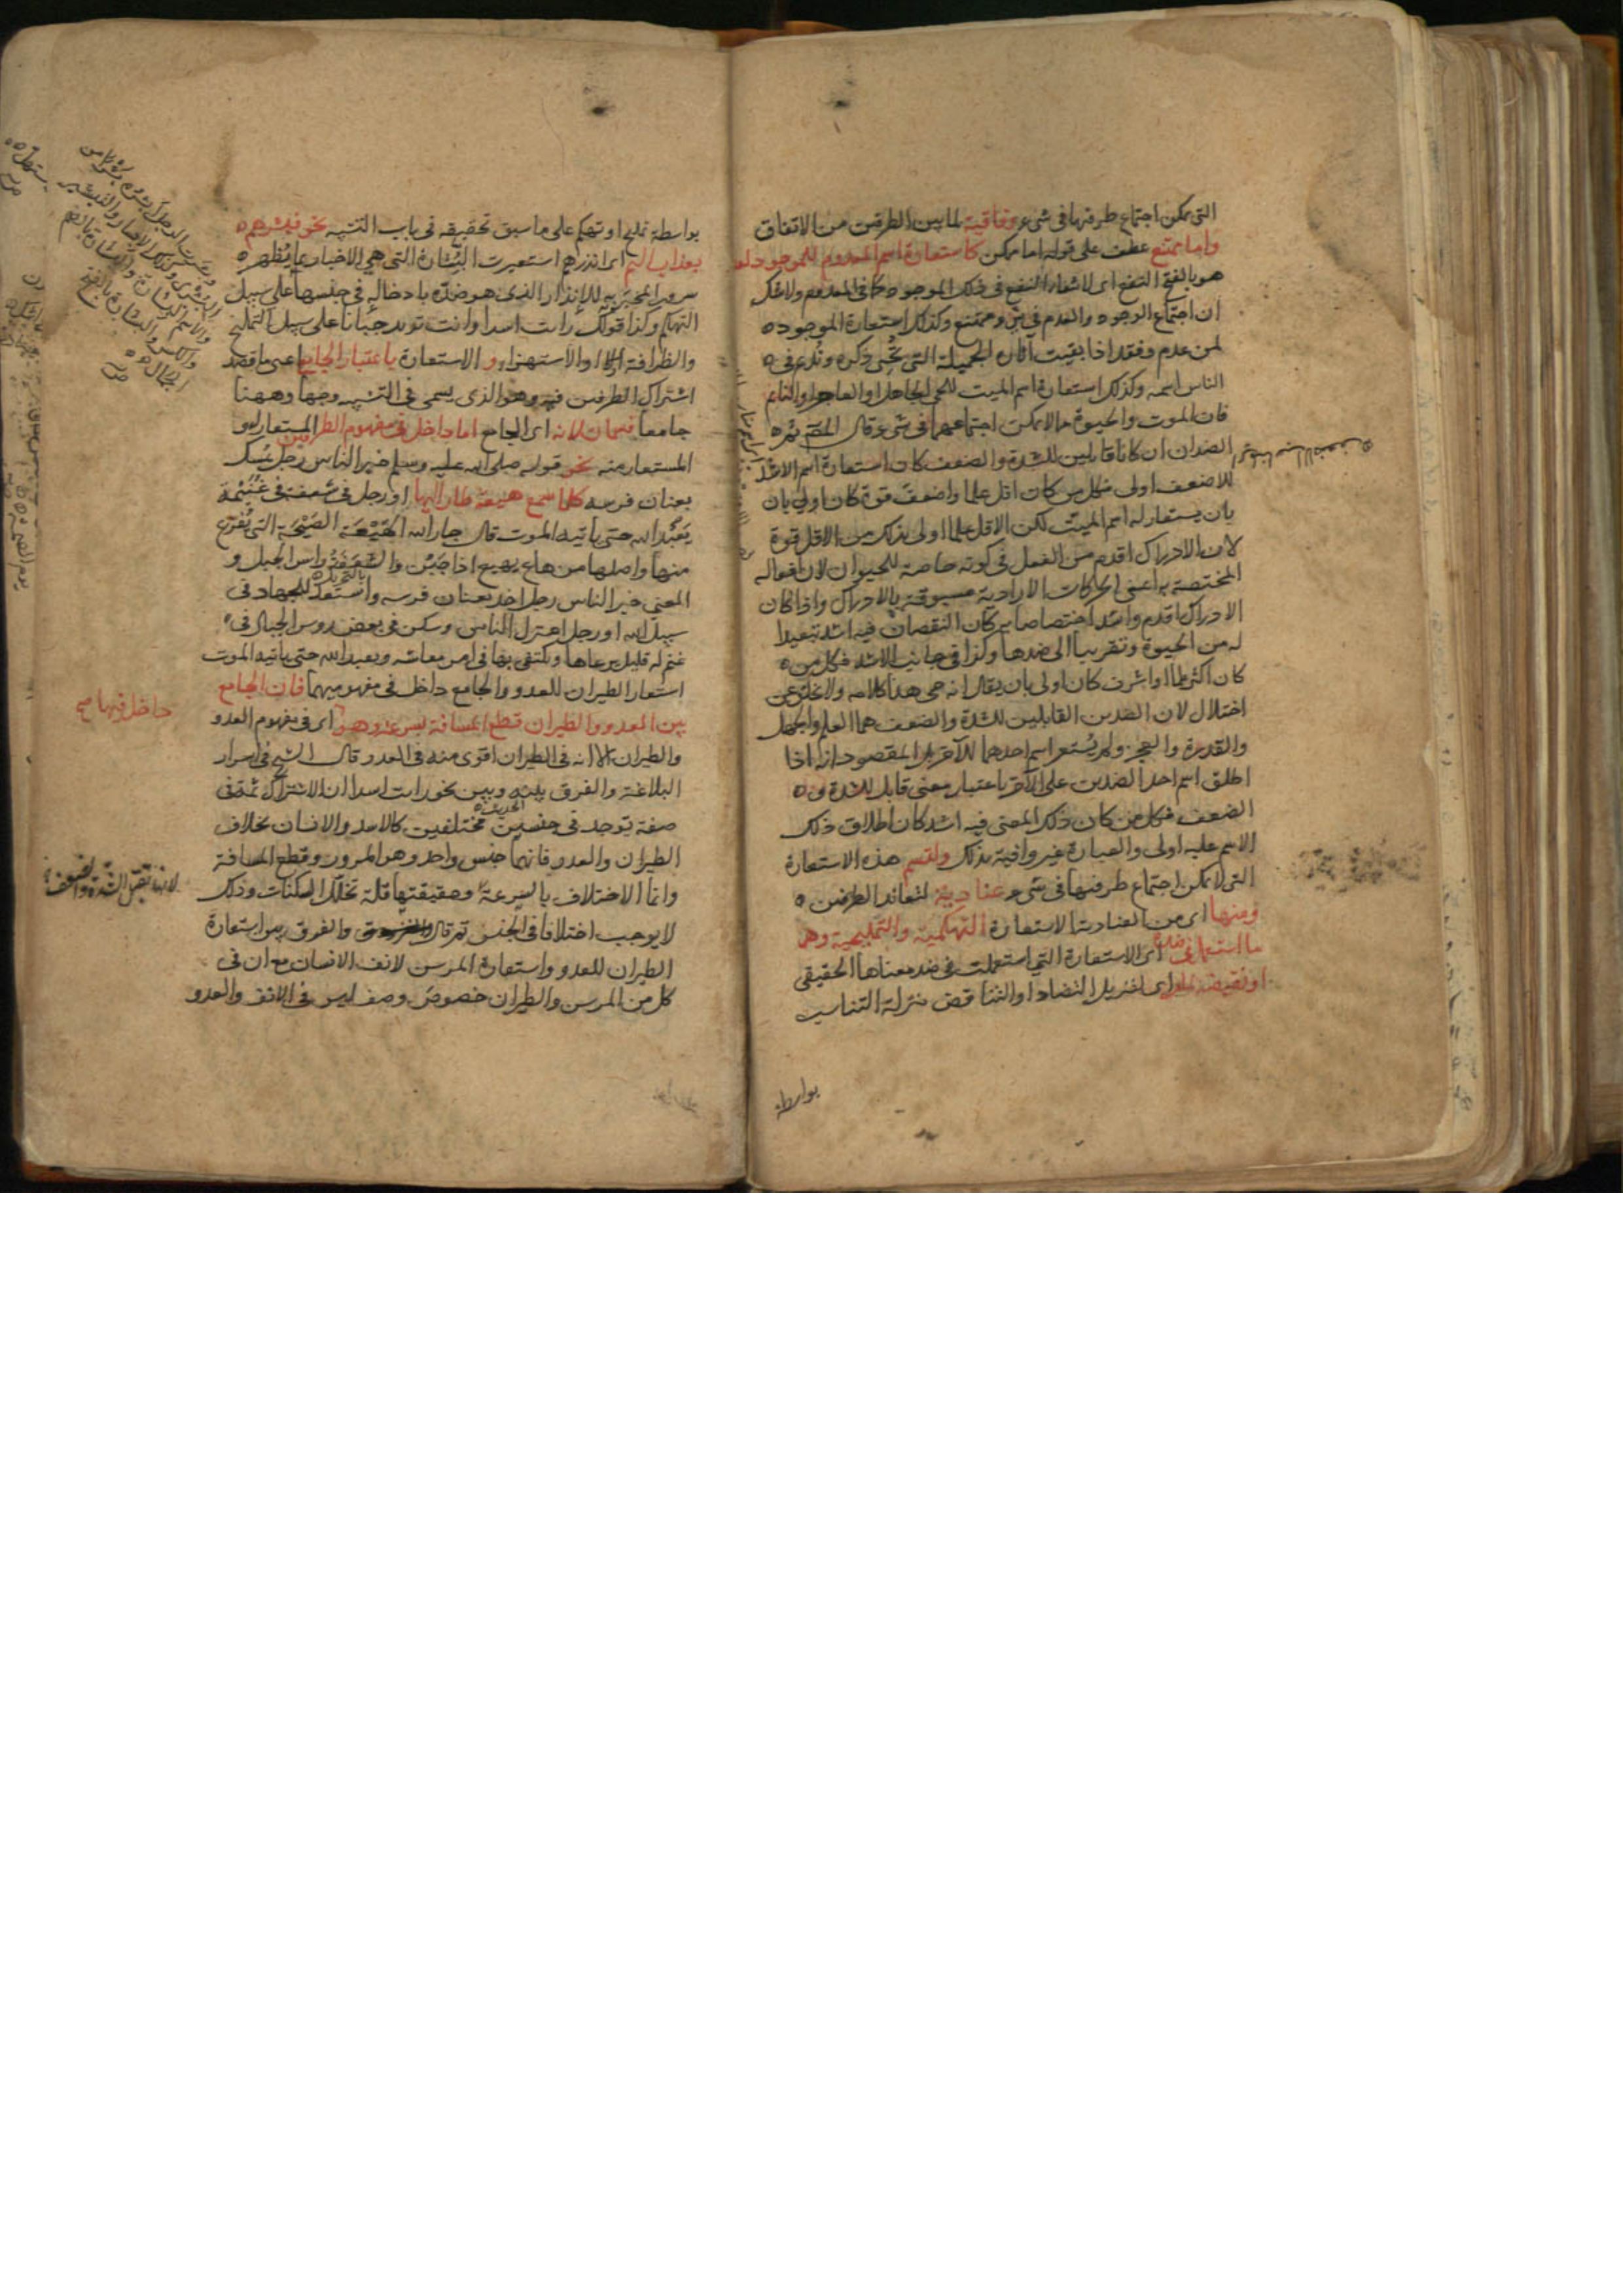 التى يمكن اجتماع طرفيها فى شىء وفاقية لما بين الطرفين من الاتفاق
واما ممتنع عطف على قوله اما ممكن كاستعارة اسم المعدوم للموجود لعدم
هو بالفتح النفع اى لانتفاء النفع فى ذلك الموجود كما فى المعدوم ولا شك
ان اجتماع الوجود والعدم فى شئ ممتنع وكذلك استعارة الموجود
لمن عدم وفقد اذا بقيت آثاره الجميلة التى تحيى ذكره وتديم فى
الناس اسمه وكذلك استعارة اسم الميت للحى الجاهل او العاجز او النائم
فان الموت والحيوة مما لا يمكن اجتماعهما فى شىء قال المصنف ثم
الضدان ان كانا قابلين للشدة والضعف كان استعارة اسم الاشد
للاضعف اولى فكل من كان اقل علما واضعف قوة كان اولى بان
بان يستعار له اسم الميت لكن الاقل علما اولى بذلك من الاقل قوة
لان الادراك اقدم من الفعل فى كونه خاصة للحيوان لان افعاله
المختصة به اعنى الحركات الارادية مسبوقة بالادراك واذا كان
الادراك اقدم واشد اختصاصا به كان النقصان فيه اشد تبعيدا
له من الحيوة وتقريبا الى ضدها وكذا فى جانب الاشد فكل من
كان اكثر علما او اشرف كان اولى بان يقال انه حى هذا كلامه ولا يخلو عن
اختلال لان الضدين القابلين للشدة والضعف هما العلم والجهل
والقدرة والعجز ولم يستعر اسم احدهما للآخر بل المقصود انه اذا
اطلق اسم احد الضدين على الآخر باعتبار معنى قابل للشدة و
الضعف فكل من كان ذلك المعنى فيه اشد كان اطلاق ذلك
الاسم عليه اولى والعبارة غير وافية بذلك ولتسم هذه الاستعارة
التى لا يمكن اجتماع طرفيها فى شىء عنادية لتعاند الطرفين
ومنها اى من العنادية الاستعارة التهكمية والتمليحية وهما
ما استعمل فى ضده اى الاستعارة التى استعملت فى ضد معناها الحقيقى
او نقيضه لما مر اى لتنزيل التضاد او التناقض منزلة التناسب
بواسطة
بواسطة تمليح او تهكم على ما سبق تحقيقه فى باب التشبيه نحو فبشرهم
بعذاب اليم اى انذرهم استعيرت البشارة التى هى الاخبار بما يظهر
سرور المخبر به للانذار الذى هو ضده بادخاله فى جنسها على سبيل
التهكم وكذا قولك رايت اسدا وانت تريد جبانا على سبيل التمليح
والظرافة او الاستهزاء و الاستعارة باعتبار الجامع اعنى ما قصد
اشتراك الطرفين فيه وهو الذى يسمى فى التشبيه وجها وههنا
جامعا قسمان لانه اى الجامع اما داخل فى مفهوم الطرفين المستعار له و
المستعار منه نحو قوله صلى الله عليه وسلم خير الناس رجل يمسك
بعنان فرسه كلما سمع هيعة طار اليها او رجل فى شعفة فى غنيمة
يعبد الله حتى يأتيه الموت قال جار الله الهيعة الصيحة التى يفزع
منها واصلها من هاع يهيع اذا جبن والشعفة بالتحريك رأس الجبل و
المعنى خير الناس رجل اخذ بعنان فرسه واستعد للجهاد فى
سبيل الله او رجل اعتزل الناس وسكن فى بعض رؤس الجبال فى
غنم له قليل يرعاها ويكتفى بها فى امر معاشه ويعبد الله حتى يأتيه الموت
استعار الطيران للعدو والجامع داخل فى مفهوميهما فان الجامع
بين العدو والطيران قطع المسافة بسرعة وهو اى فى مفهوم العدو
داخل فيهما صح
والطيران الا انه فى الطيران اقوى منه فى العدو قال الشيخ فى اسرار
البلاغة والفرق بينه وبين نحو رايت اسدا ان الاشتراك ثمة فى
صفة توجد فى جنسين مختلفين كالاسد والانسان بخلاف
الطيران والعدو فانهما جنس واحد وهو المرور وقطع المسافة
وانما الاختلاف بالسرعة وحقيقتها قلة تخلل السكنات وذلك
لا يوجب اختلافا فى الجنس ثم قال والفرق بين استعارة
الطيران للعدو واستعارة المرسن لانف الانسان مع ان فى
كل من المرسن والطيران خصوص وصف ليس فى الانف والعدو